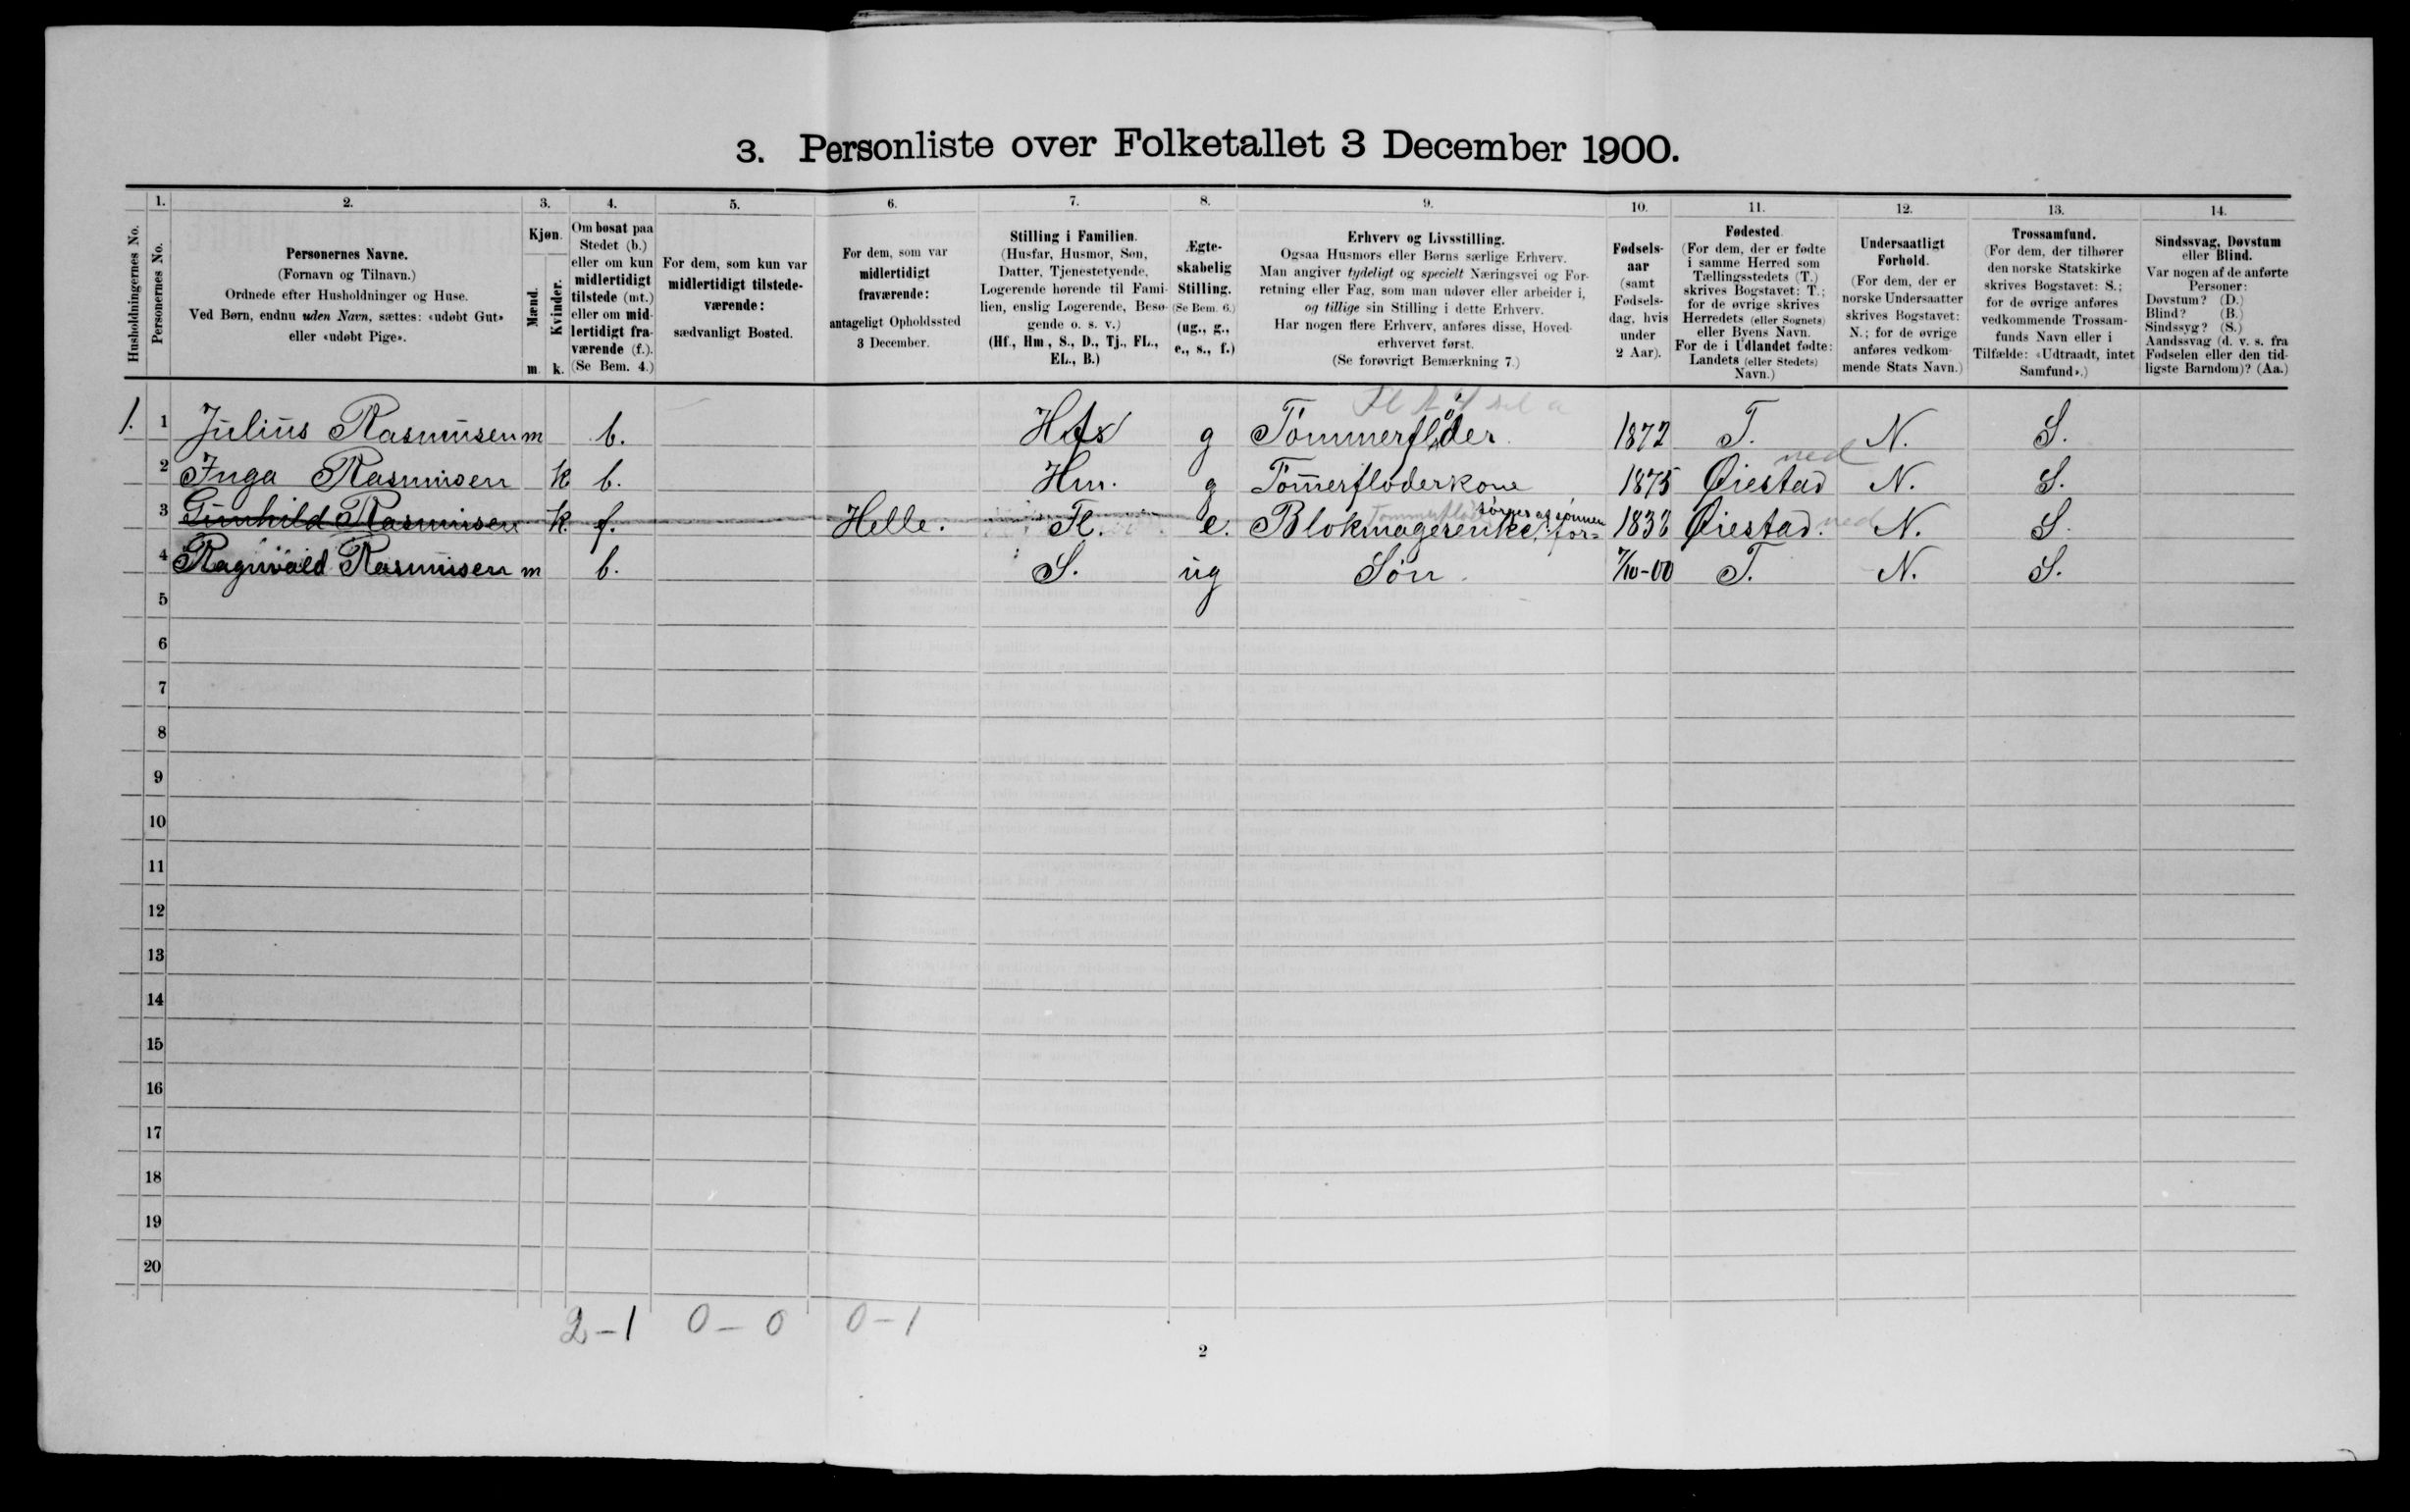 3. Personliste over Folketallet 3 December 1900.
Husholdningernes No.
1.
Personernes No.
2.
Personernes Navne.
(Fornavn og Tilnavn.)
Ordnede efter Husholdninger og Huse.
Ved Børn, endnu uden Navn, sættes: «udøbt Gut»
eller «udøbt Pige».
3.
Kjøn.
Mænd.
Kvinder.
m. k.
4.
Om bosat paa
Stedet (b.)
eller om kun
midlertidigt
tilstede (mt.)
eller om mid-
lertidigt fra-
værende (f.).
(Se Bem. 4.)
5.
For dem, som kun var
midlertidigt tilstede-
værende:
sædvanligt Bosted.
6.
For dem, som var
midlertidigt
fraværende:
antageligt Opholdssted
3 December.
7.
Stilling i Familien.
(Husfar, Husmor, Søn,
Datter, Tjenestetyende,
Logerende hørende til Fami-
lien, enslig Logerende, Besø-
gende o. s. v.)
(Hf., Hm., S., D., Tj., FL.,
EL., B.)
8.
Ægte-
skabelig
Stilling.
(Se Bem. 6.)
(ug., g.,
e., s., f.)
9.
Erhverv og Livsstilling.
Ogsaa Husmors eller Børns særlige Erhverv.
Man angiver tydeligt og specielt Næringsvei og For-
retning eller Fag, som man udøver eller arbeider i,
og tillige sin Stilling i dette Erhverv.
Har nogen flere Erhverv, anføres disse, Hoved-
erhvervet først.
(Se forøvrigt Bemærkning 7.)
10.
Fødsels-
aar
(samt
Fødsels-
dag, hvis
under
2 Aar).
11.
Fødested.
(For dem, der er fødte
i samme Herred som
Tællingsstedets (T.)
skrives Bogstavet: T.;
for de øvrige skrives
Herredets (eller Sognets)
eller Byens Navn.
For de i Udlandet fødte:
Landets (eller Stedets)
Navn.)
12.
Undersaatligt
Forhold.
(For dem, der er
norske Undersaatter
skrives Bogstavet:
N.; for de øvrige
anføres vedkom-
mende Stats Navn.)
13.
Trossamfund.
(For dem, der tilhører
den norske Statskirke
skrives Bogstavet: S.;
for de øvrige anføres
vedkommende Trossam-
funds Navn eller i
Tilfælde: «Udtraadt, intet
Samfund».)
14.
Sindssvag, Døvstum
eller Blind.
Var nogen af de anførte
Personer:
Døvstum? (D.)
Blind? (B.)
Sindssyg? (S.)
Aandssvag (d. v. s. fra
Fødselen eller den tid-
ligste Barndom)? (Aa.)
1. 1 Julius Rasmusen m b. g Tömmerflöder 1872 T. N. S.
ned
2 Inga Rasmusen k b. Hm. g Tømerfløderkone 1875 Øiestad N. S.
sørges af sønnen
3 Gunhild Rasmusen k. f. Helle. Fl. e. Blokmagerenke, for= 1838 Øiestad. ned N. S
4 Ragnvald Rasmusen m b. S. ug Søn. 7/10-00 T. N. S.
5
6
7
8
9
10
11
12
13
14
15
16
17
18
19
20
2-1 0-0 0-1
2